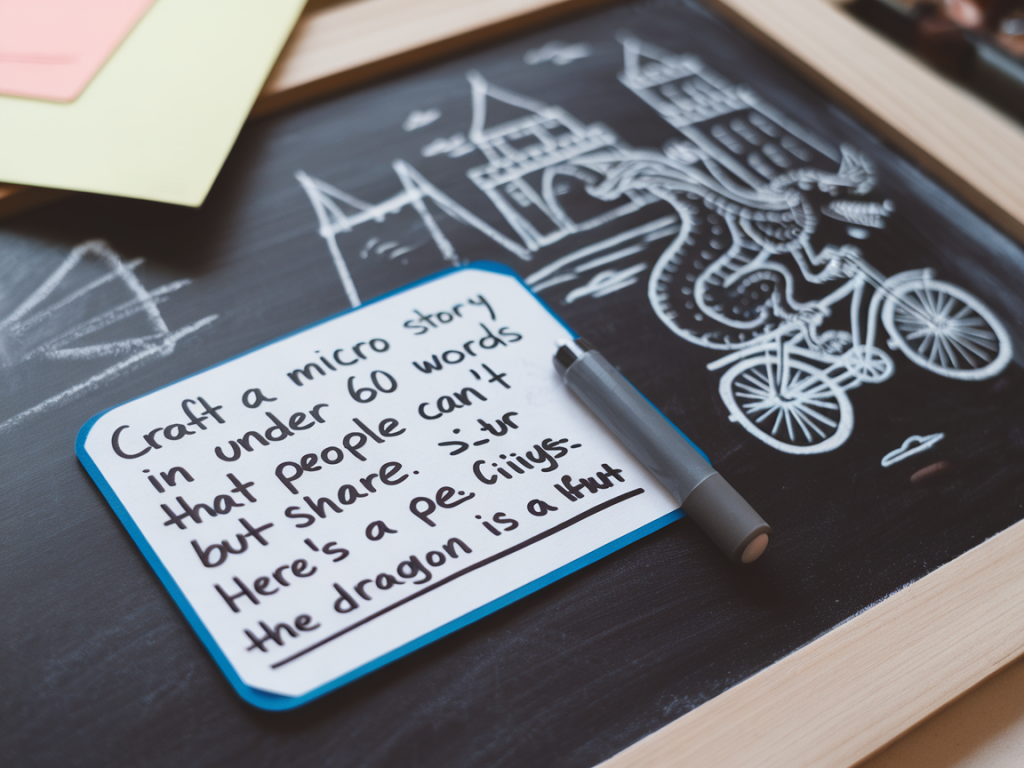 Craft a micro story
in under 60 words
that people can't
but share.
Here's a pe
the dragon is a